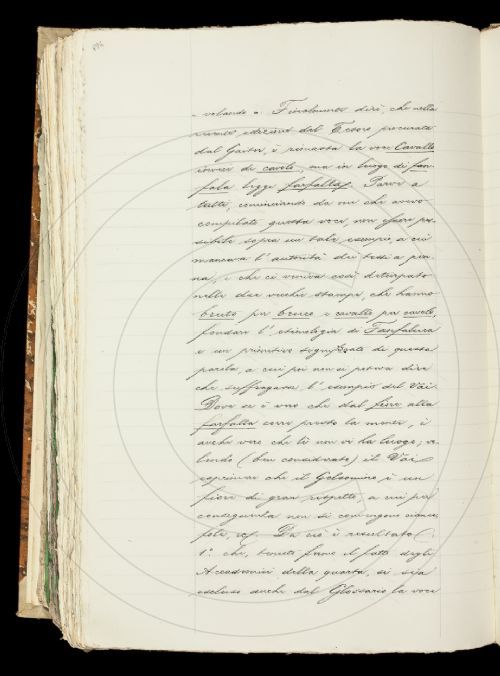 - volando ». Finalmente dirò, che nella
recente edizione del Tesoro procurata
dal Gaiter, è rimasta la voce Cavallo
invece di cavolo, ma in luogo di fan-
fala legge farfalla. Parve a
tutti, cominciando da me che avevo
compilato questa voce, non essere pos-
sibile sopra un tale esempio, a cui
mancava l'autorità dei testi a pen-
na, e che ci veniva così deturpato
nelle due vecchie stampe, che hanno
bruto per bruco e cavallo per cavolo,
fondare l'etimologia di Fanfaluca
e un primitivo significato di questa
parola, a cui poi non si poteva dire
che suffragava l'esempio del Vai.
Dove se è vero che dal fiore alla
farfalla corre presto la mente, è
anche vero che lì non vi ha luogo; vo-
lendo (ben considerate) il Vai
esprimere che il Gelsomino è un
fiore di gran rispetto, a cui per
conseguenza non si convengono ciance,
fole, ec. Da ciò è resultato:
1.° che, tenuto fermo il fatto degli
Accademici della quarta, si sia
escluso anche dal Glossario la voce